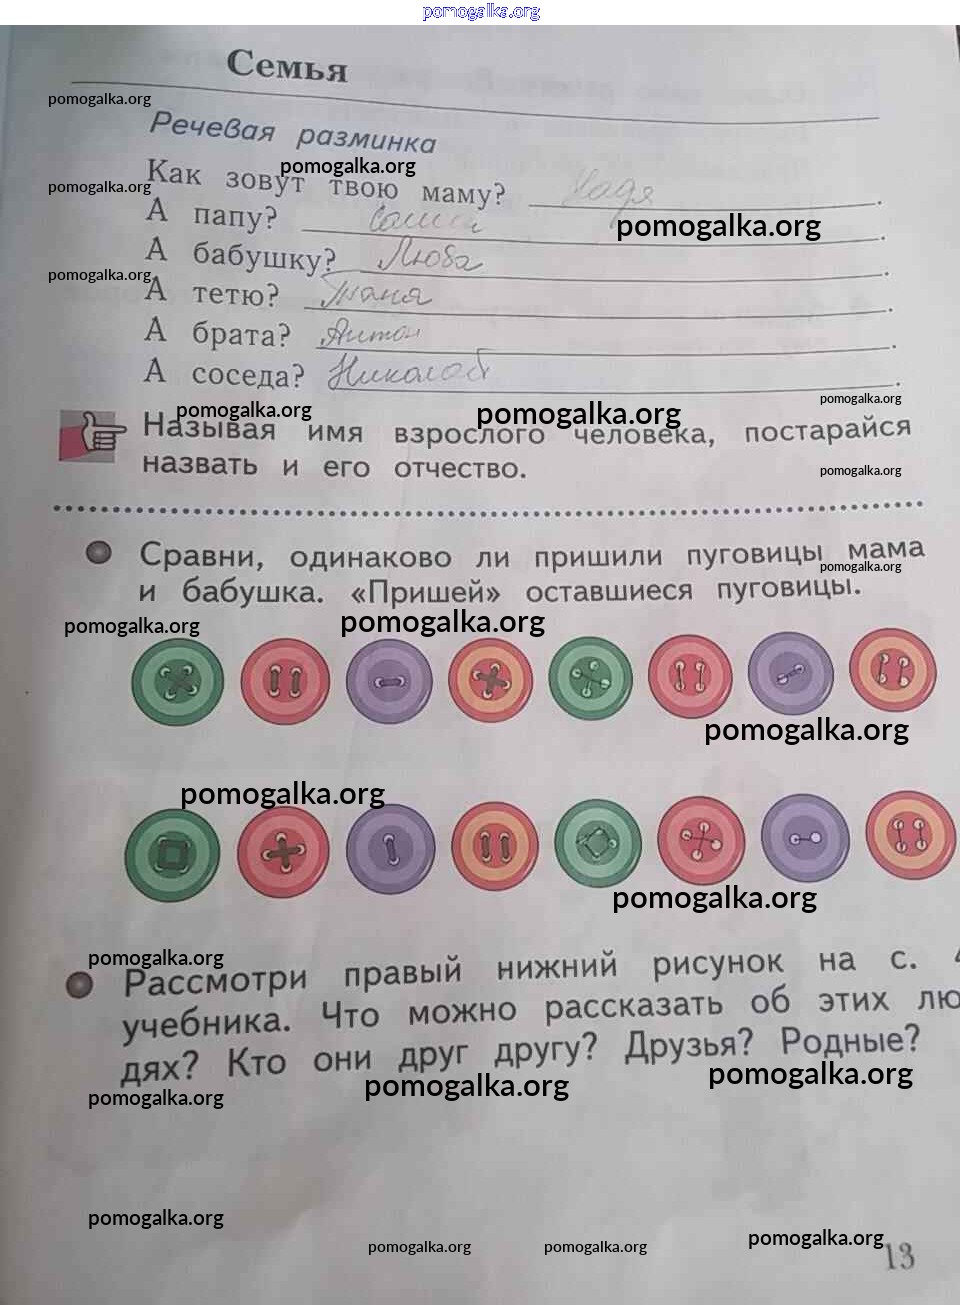 pomogalka.org
Семья
pomogalka.org
Речевая разминка
pomogalka.org
Как зовут твою маму? Надя.
pomogalka.org
А папу? Саша.
pomogalka.org
А бабушку? Люба.
pomogalka.org
А тетю? Таня.
А брата? Антон.
А соседа? Николай.
pomogalka.org
pomogalka.org pomogalka.org
Называя имя взрослого человека, постарайся
назвать и его отчество.
pomogalka.org
Сравни, одинаково ли пришили пуговицы мама
pomogalka.org
и бабушка. «Пришей» оставшиеся пуговицы.
pomogalka.org pomogalka.org
pomogalka.org
pomogalka.org
pomogalka.org
pomogalka.org
Рассмотри правый нижний рисунок на с.
учебника. Что можно рассказать об этих лю
дях? Кто они друг другу? Друзья? Родные?
pomogalka.org pomogalka.org pomogalka.org
pomogalka.org
pomogalka.org pomogalka.org pomogalka.org
13